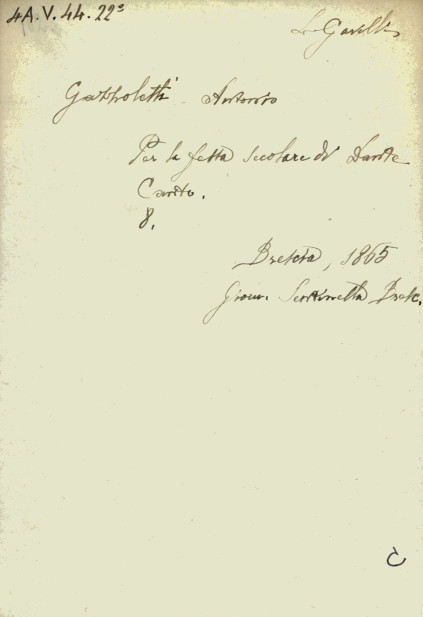 4A.V.44.22³
Gazzoletti Antonio
Per la festa secolare di Dante
Canto.
8.
Brescia, 1865
Giorn. Sentinella Bresc.
C